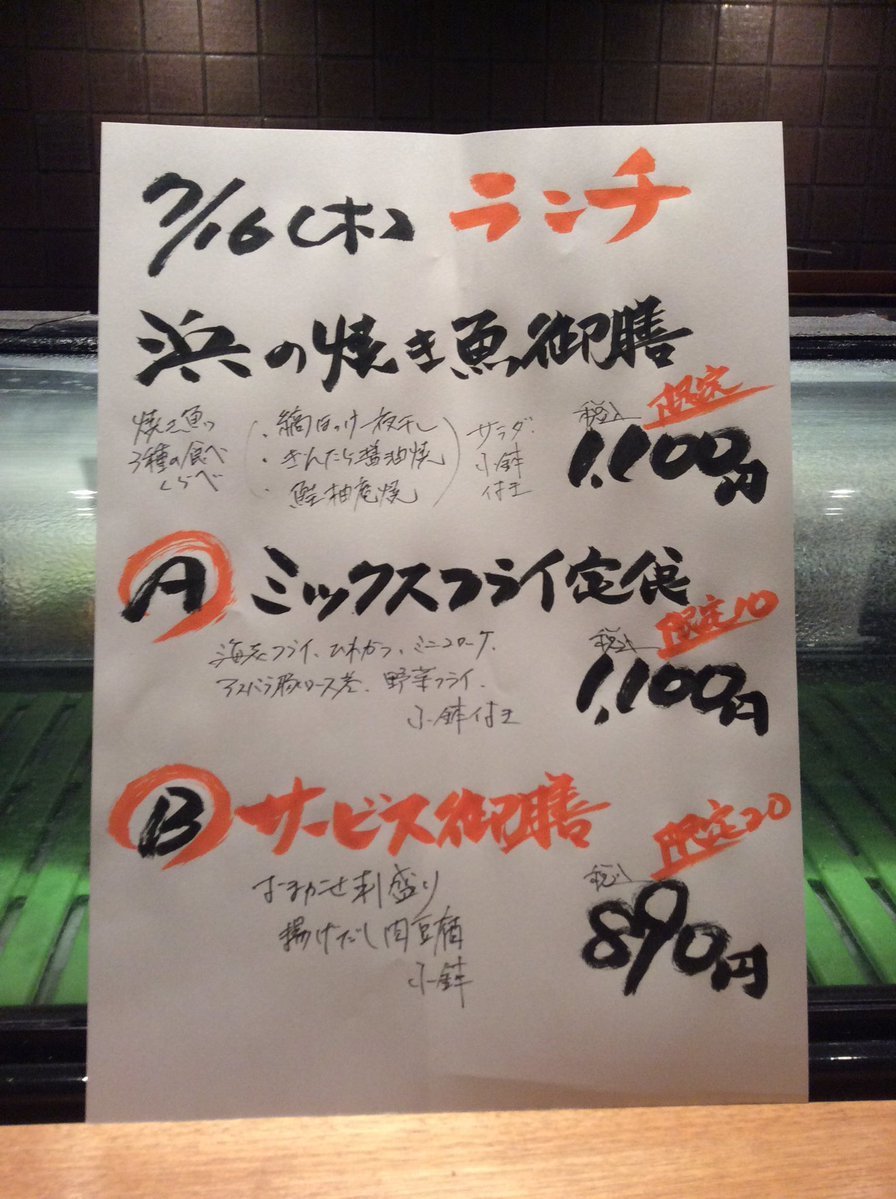 7/16(木) ランチ
浜の焼き魚御膳
焼き魚
3種の食べ
くらべ
・縞ほっけ一夜干し
・ぎんだら醤油焼
・鮭柚庵焼
サラダ・
小鉢
付き
限定
税込
1,100円
A ミックスフライ定食
海老フライ、ひれかつ、ミニコロッケ、
アスパラ豚ロース巻、野菜フライ、
小鉢付き
限定10
税込
1,100円
B サービス御膳
おまかせ刺盛り
揚げだし肉豆腐
小鉢
限定20
税込
890円